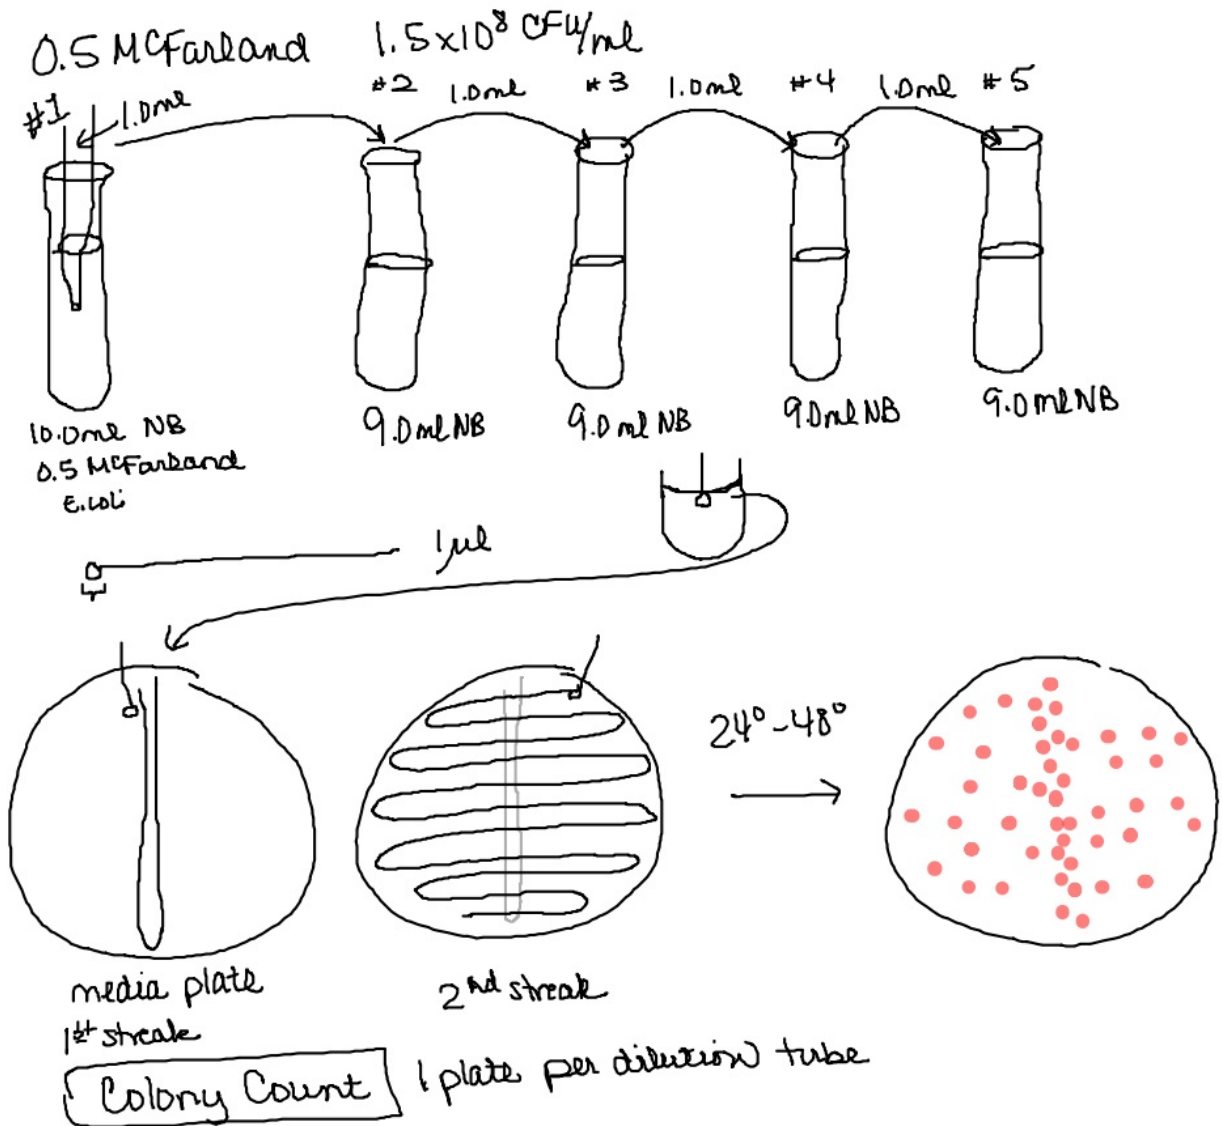 0.5 McFarland 1.5x10⁸ CFU/ml
#1 1.0ml #2 1.0ml #3 1.0ml #4 1.0ml #5
10.0ml NB
0.5 McFarland
E.coli
9.0ml NB
9.0ml NB
9.0ml NB
9.0ml NB
1µl
24°-48°
media plate
1st streak
2nd streak
Colony Count
1 plate per dilution tube